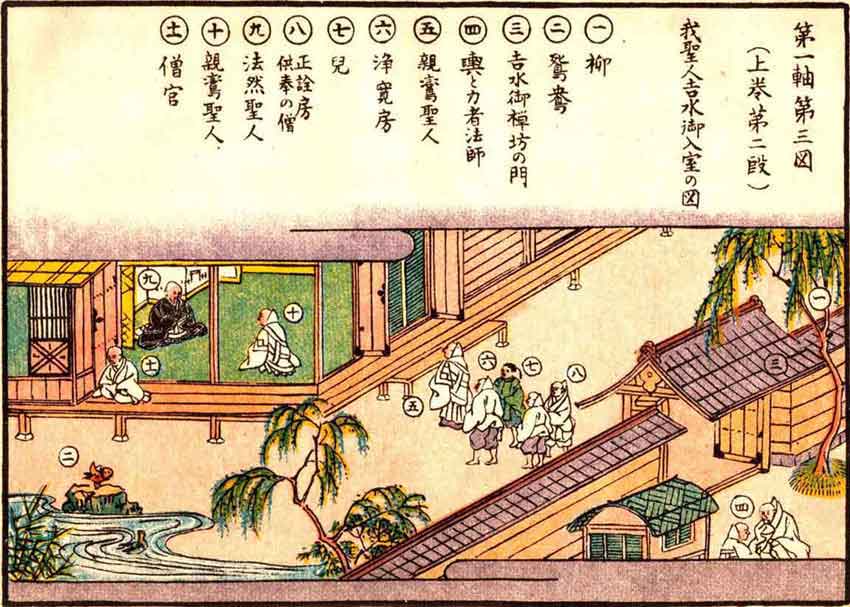 第一軸第三図
(上巻第二段)
我聖人吉水御入室の図
㊀ 柳
㊁ 鴛鴦
㊂ 吉水御禅坊の門
㊃ 輿と力者法師
㊄ 親鸞聖人
㊅ 浄寛房
㊆ 兒
㊇ 正詮房
供奉の僧
㊈ 法然聖人
㊉ 親鸞聖人
十一 僧官
㊀
㊂
㊃
㊇
㊆
㊅
㊄
㊉
㊈
十一
㊁